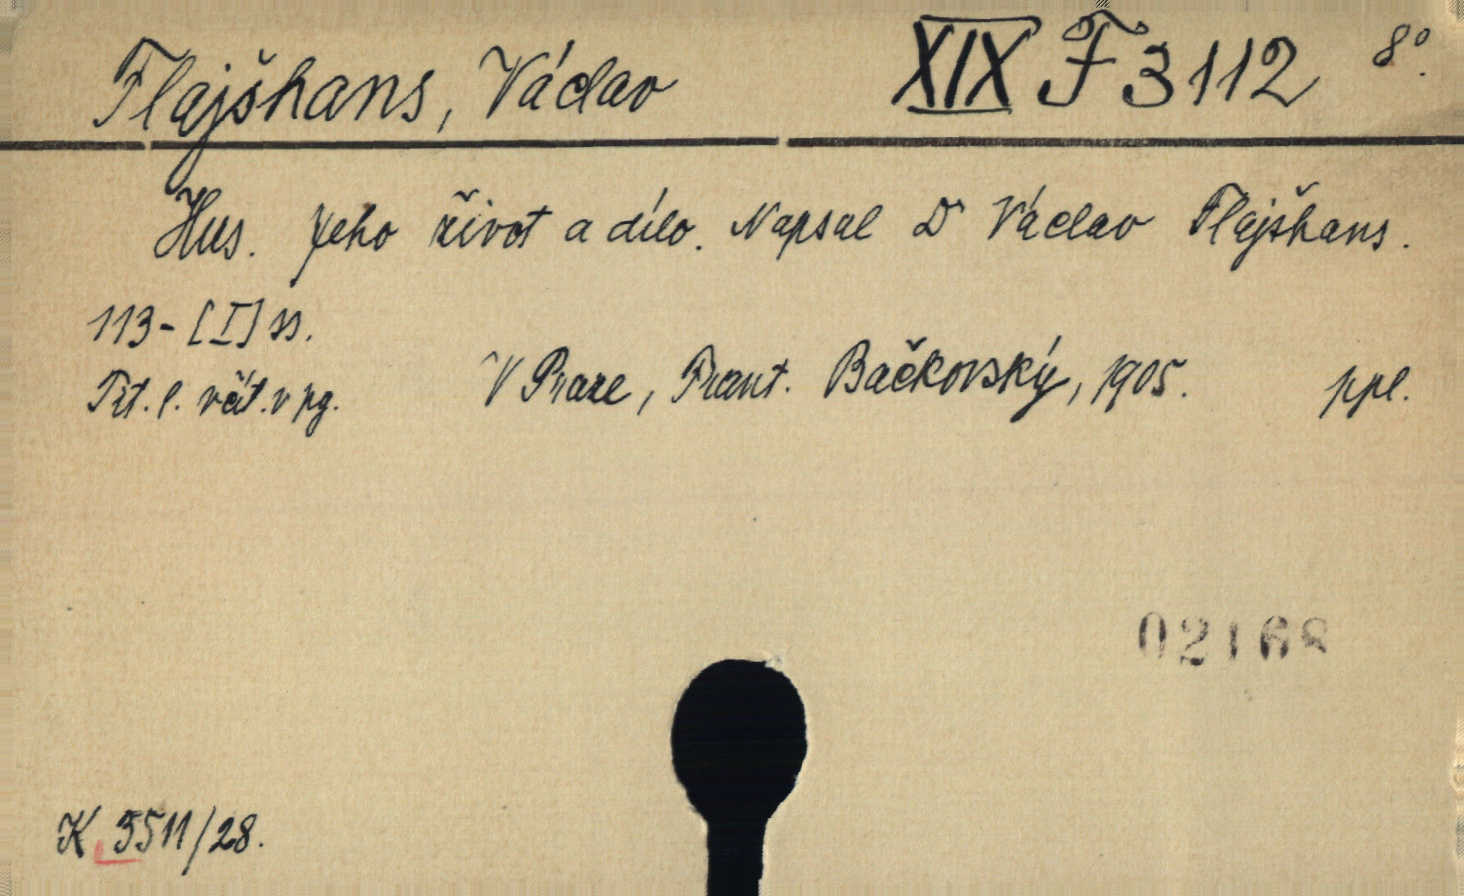 Flajšhans, Václav XIX F 3112 8°.
Hus. Jeho život a dílo. Napsal Dr Václav Flajšhans.
113-[I] ss.
Tit. l. včít. v pg. V Praze, Frant. Bačkovský, 1905. ppl.
02168
K 5511/28.